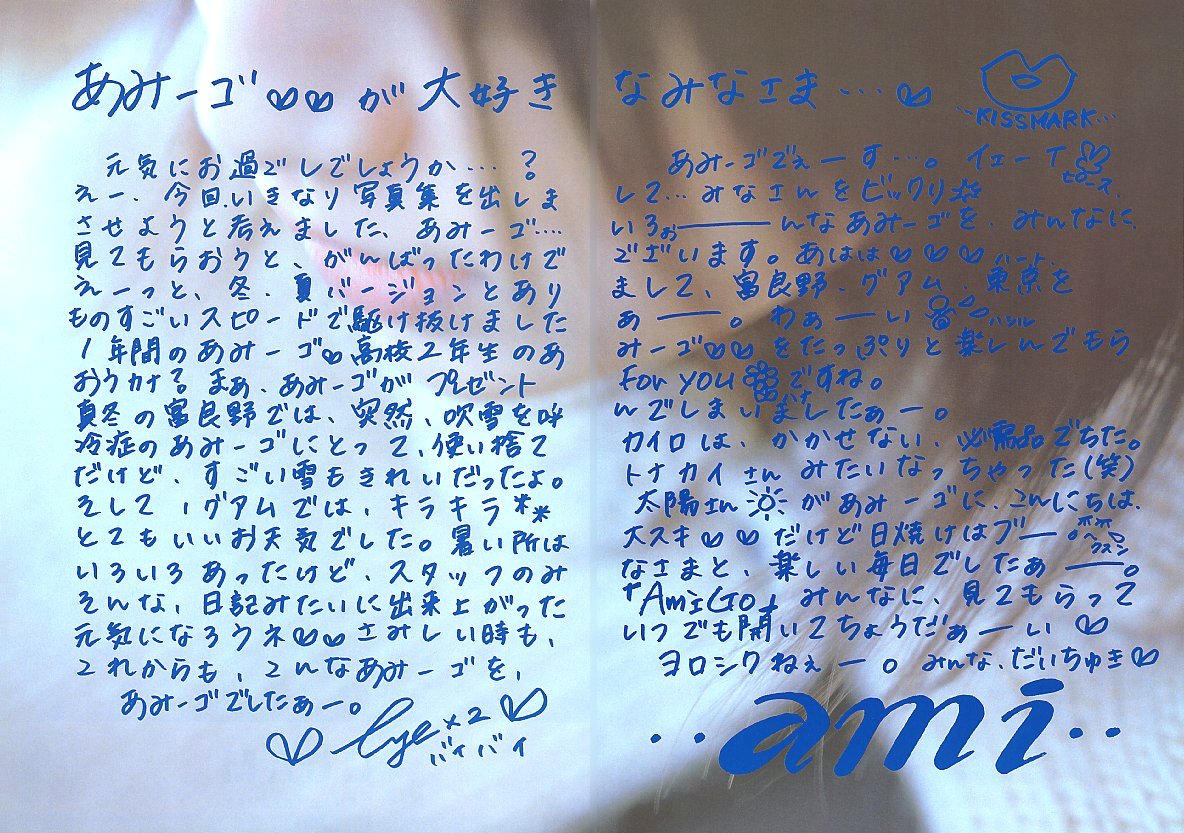 あみーゴ♡♡が大好きなみなさま…♡ KISSMARK…
元気にお過ごしでしょうか…？ あみーゴでぇーす…。イェーイ ピース
えー、今回、いきなり写真集を出しまして…みなさんをビックリ
させようと考えました、あみーゴ….いろぉーーんなあみーゴを、みんなに、
見てもらおうと、がんばったわけでございます。あはは♡♡♡ハート、
えーっと、冬、夏バージョンとありまして、富良野、グアム、東京を
ものすごいスピードで駆け抜けましたぁー。わぁーい ハシル
1年間のあみーゴ♡高校2年生のあみーゴ♡♡をたっぷりと楽しんでもら
おうカナ？まぁ、あみーゴがプレゼント For YOU ハナ ですね。
真冬の富良野では、突然、吹雪を呼んでしまいましたぁー。
冷症のあみーゴにとって、使い捨てカイロは、かかせない、必需品でちた。
だけど、すごい雪もきれいだったよ。トナカイさんみたいなっちゃった(笑)
そして、グアムでは、キラキラ**太陽さん☼があみーゴに、こんにちは、
とてもいいお天気でした。暑い所は大スキ♡♡だけど日焼けはブー。 クスン
いろいろあったけど、スタッフのみなさまと、楽しい毎日でしたぁー。
そんな、日記みたいに出来上がった「AmiGo」みんなに、見てもらって
元気になろウネ♡♡さみしい時も、いつでも開いてちょうだぁーい♡
これからも、こんなあみーゴを、ヨロシクねぇー。みんな、だいちゅき♡
あみーゴでしたぁー。
♡bye×2♡
バイバイ
‥ami‥